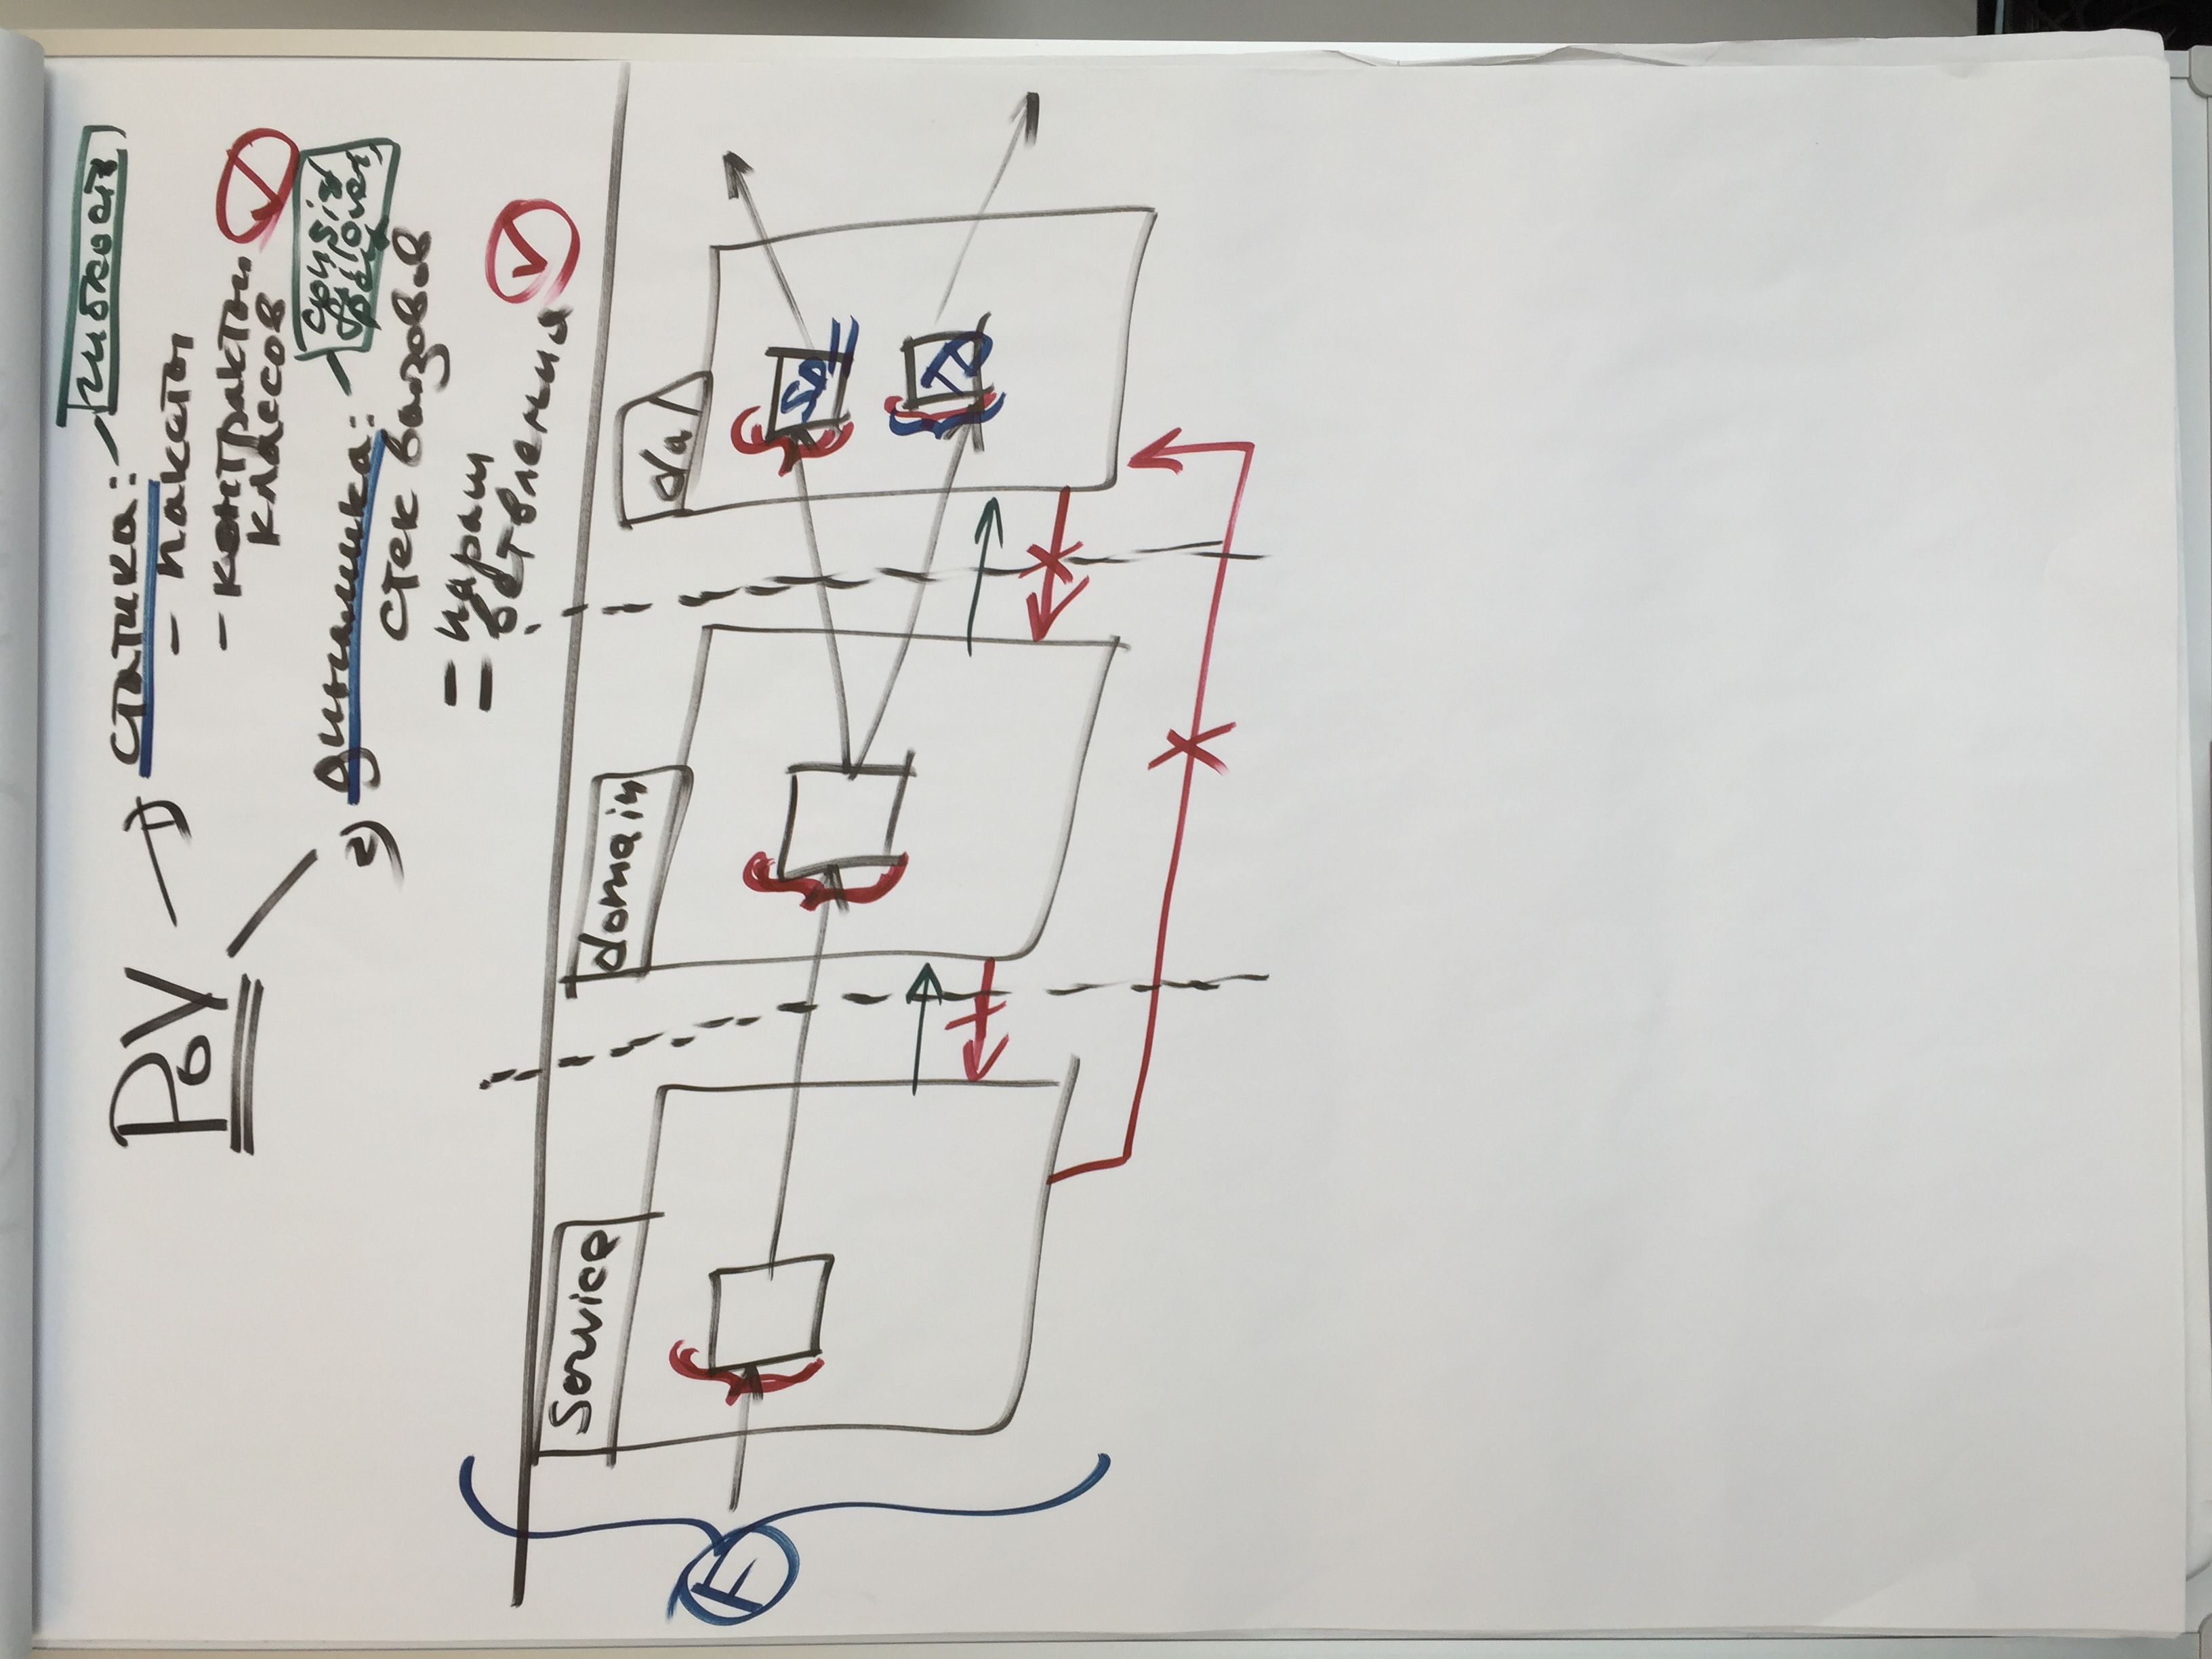 PoV
1) статика:
гибкость
- пакеты
- контракты
классов
2) динамика:
consist
failover,
стек вызовов
= парам
= ветвления
service
domain
dal
T